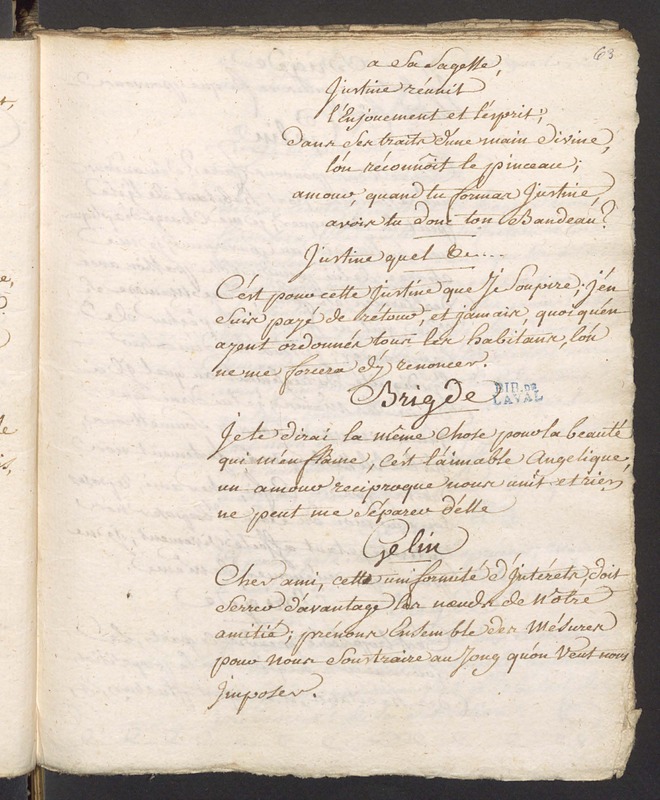 63
a Sa Sagesse,
Justine réunit
l'Enjouement et l'esprit;
dans Ses traits d'une main divine,
l'on réconnoit le pinceau;
amour, quand tu formas Justine,
avois tu donc ton Bandeau?
Justine quel &c....
C'ést pour cette Justine que Je Soupire; J'en
Suis payé de retour, et jamais, quoiqu'en
ayent ordonnés tous les habitans, l'ón
ne me forcera d'y renoncer.
Brigde
DID. DE
LAVAL
Je te dirai la même chose pour la beauté
qui m'enflame, c'ést l'aimable Angelique,
un amour reciproque nous unit et rien
ne peut me Séparer d'élle
Gelin
Cher ami, cette uniformité d'Intérets, doit
Serrer d'avantage les nœuds de Nôtre
amitié; prénons Ensemble des Mésures
pour Nous Soustraire au Joug qu'on Veut nous
Imposer.